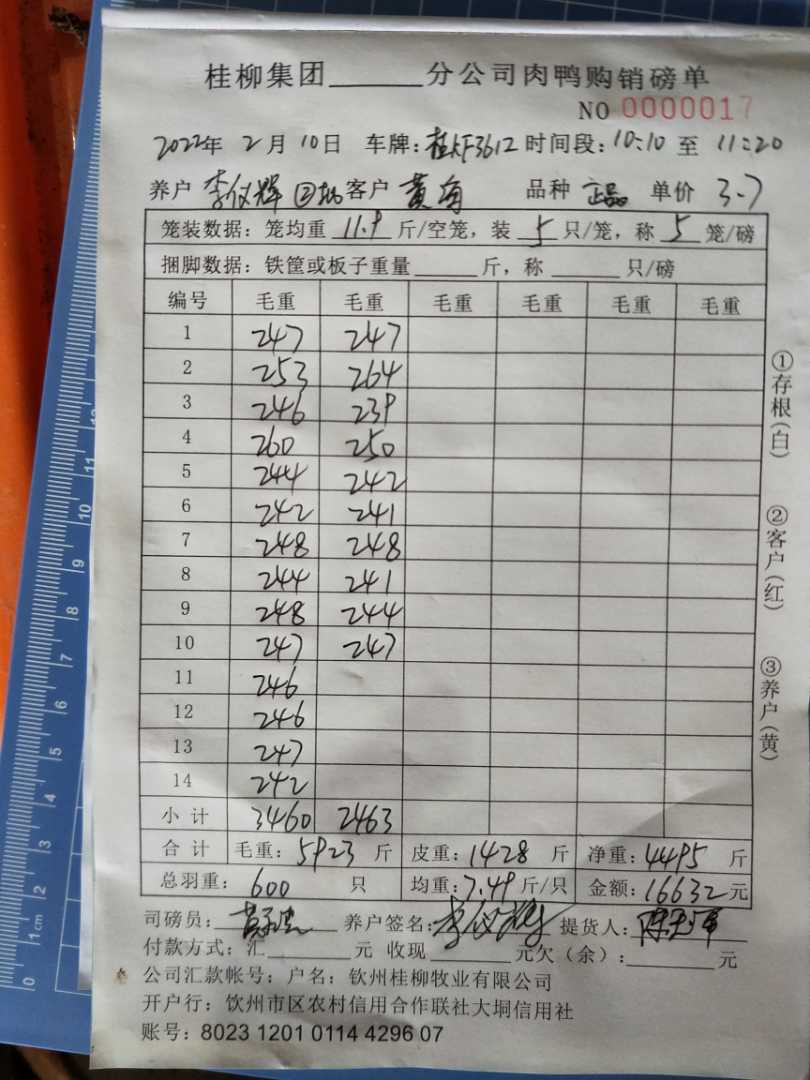 桂柳集团______分公司肉鸭购销磅单
NO 0000017
2022年 2月 10日 车牌：桂KF3612 时间段：10:10 至 11:20
养户 李仪辉 客户 黄南 品种 正品 单价 3.7
笼装数据：笼均重 11.9 斤/空笼，装 5 只/笼，称 5 笼/磅
捆脚数据：铁筐或板子重量______斤，称______只/磅
编号 毛重 毛重 毛重 毛重 毛重 毛重
1 247 247
2 253 264
3 246 239
4 260 250
5 244 242
6 242 241
7 248 248
8 244 241
9 248 244
10 247 247
11 246
12 246
13 247
14 242
小计 3460 2463
合计 毛重：5923 斤 皮重：1428 斤 净重：4495 斤
总羽重：600 只 均重：7.49 斤/只 金额：16632 元
司磅员： 养户签名：李仪辉 提货人：
付款方式：汇______元 收现______元欠（余）：______元
公司汇款帐号：户名：钦州桂柳牧业有限公司
开户行：饮州市区农村信用合作联社大垌信用社
账号：8023 1201 0114 4296 07
①存根（白）
②客户（红）
③养户（黄）
0 1cm 2 3 4 5 6 7 8 9 10 11